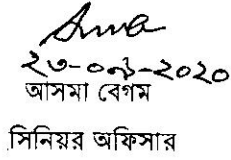 ২৩-০৯-২০২০
আসমা বেগম
সিনিয়র অফিসার